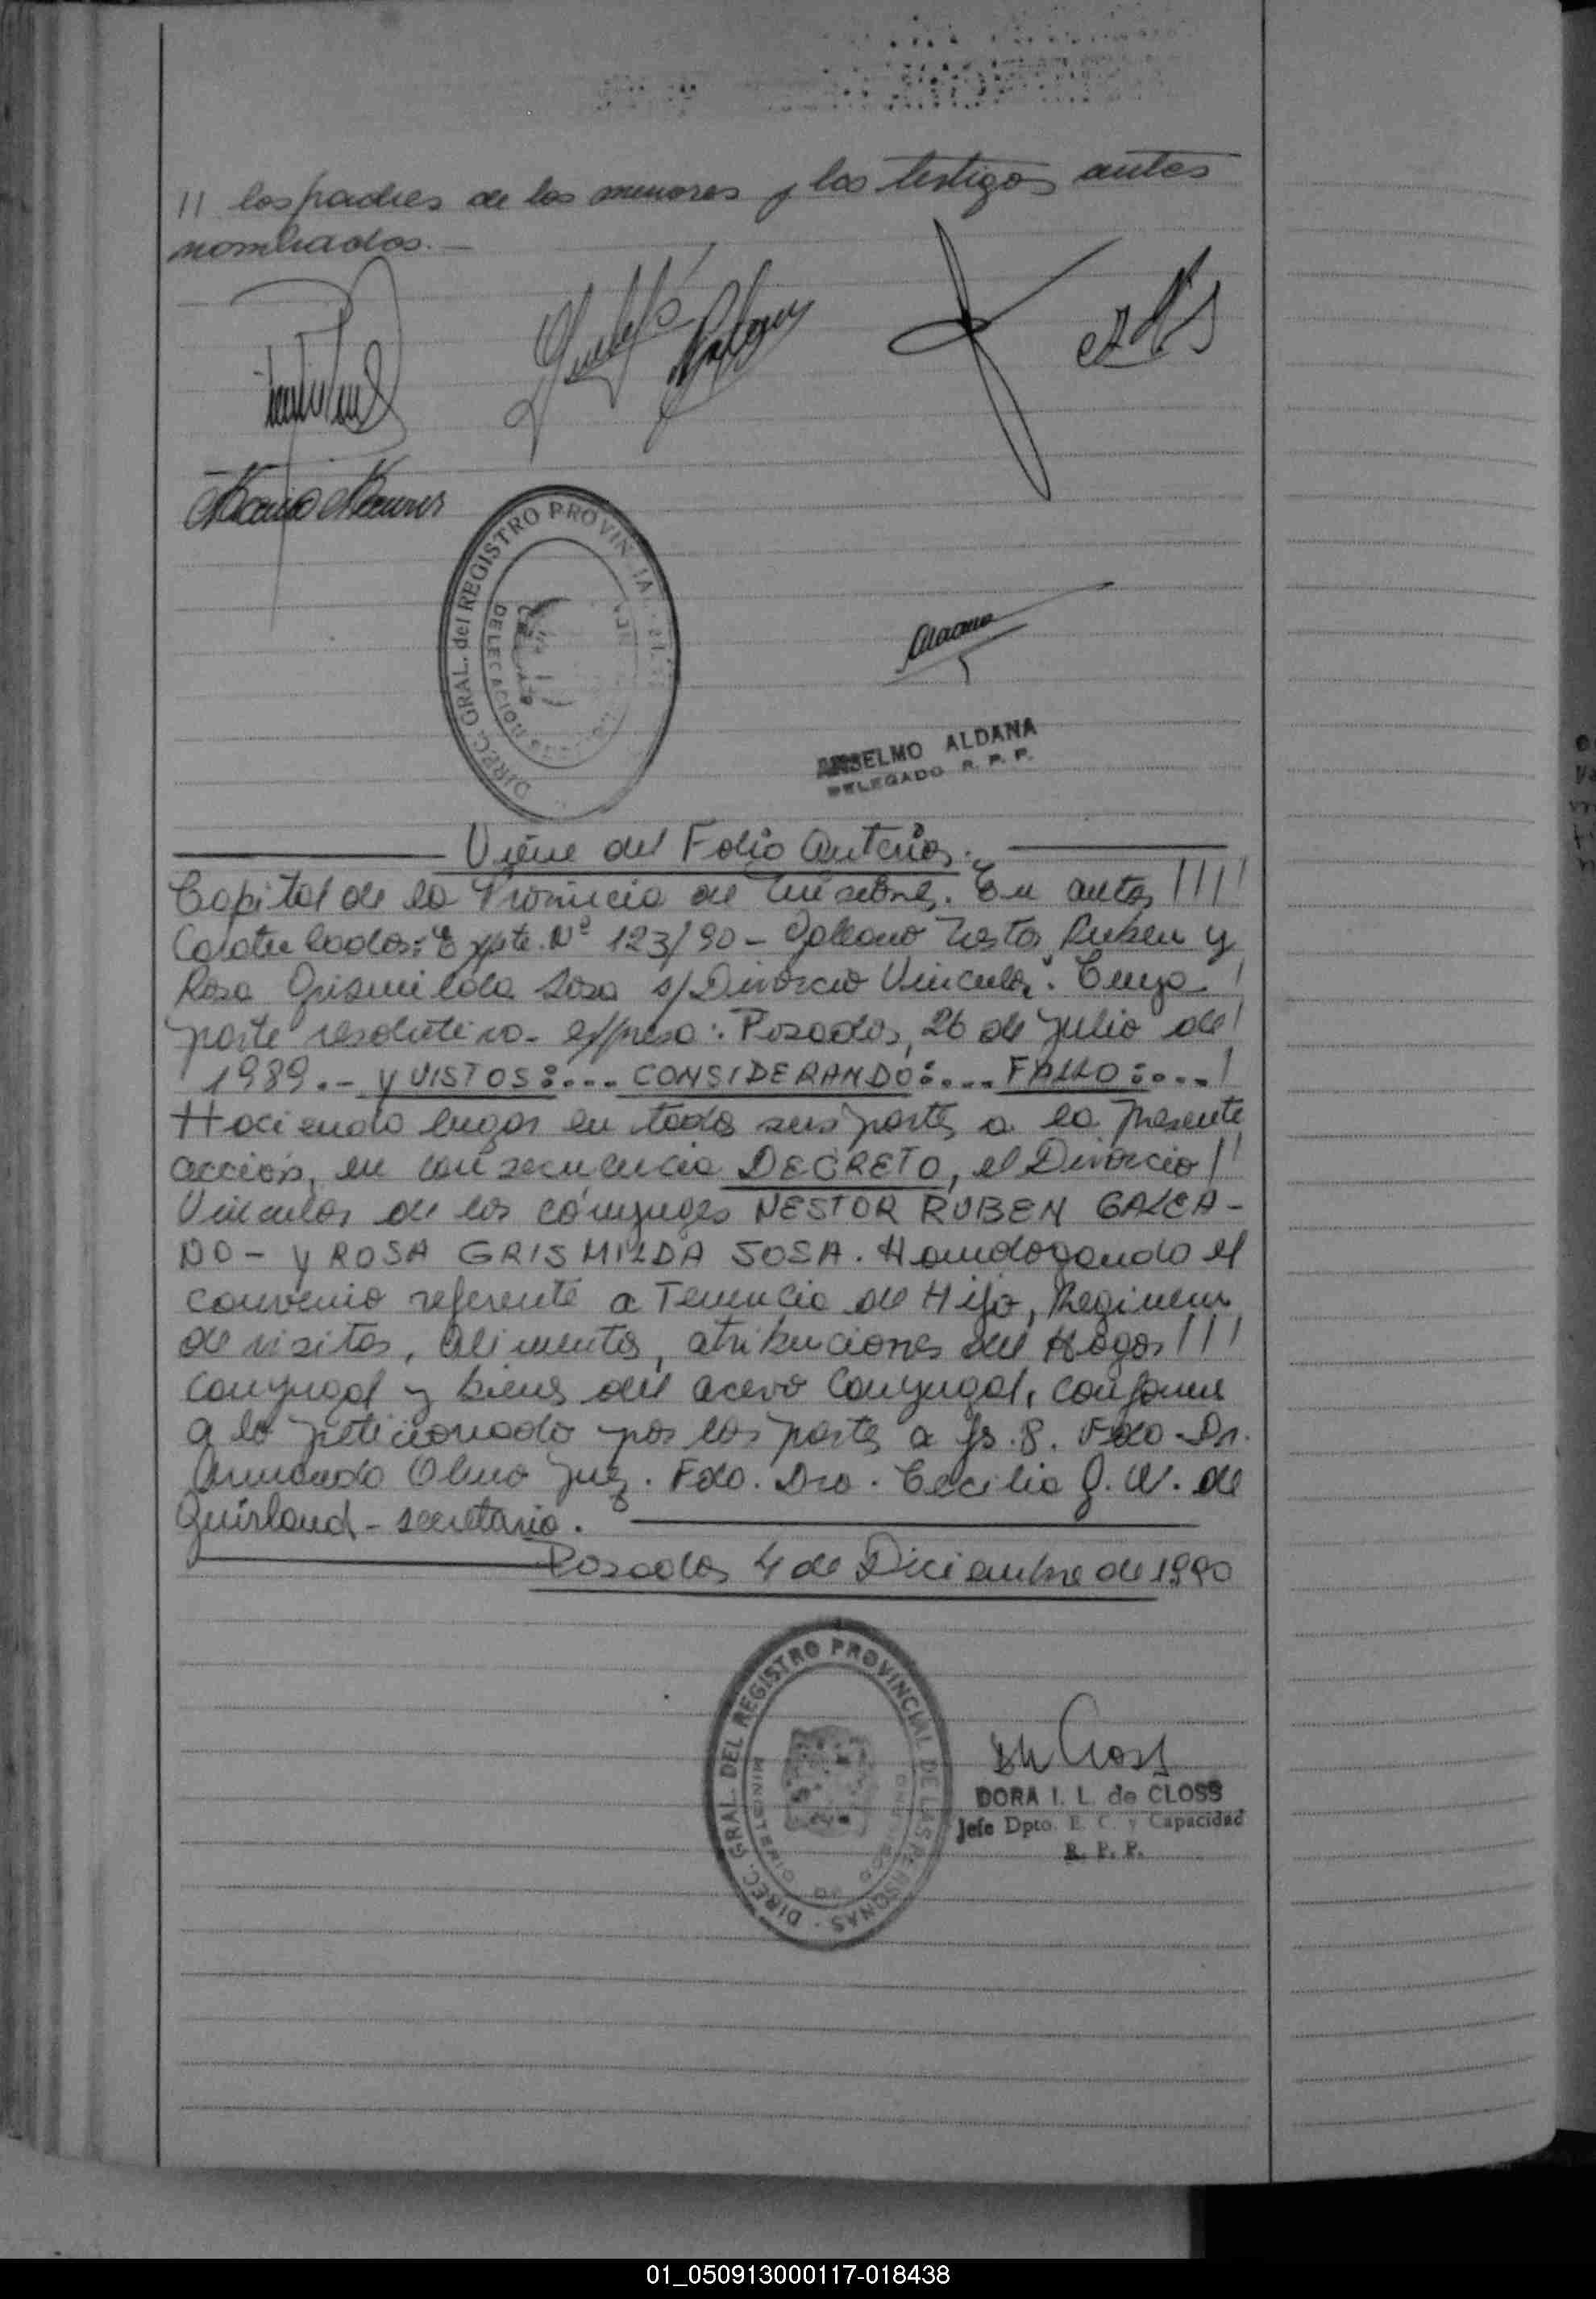 // los padres de los menores y los testigos antes
nombrados.-
DIREC. GRAL. del REGISTRO PROVINCIAL
DELEGACION
ANSELMO ALDANA
DELEGADO R. P. P.
Viene del Folio Anterior.
Capital de la Provincia de Misiones. En autos !!!!
Caratulados: "Expte. Nº 123/90 - Galeano Nestor Ruben y
Rosa Grismilda Sosa s/Divorcio Vincular". Cuya !
parte resolutiva- expresa: Posadas, 26 de julio de !
1989.- y VISTOS:.... CONSIDERANDO:.... FALLO:....!
Haciendo lugar en todas sus partes a la presente
acción, en consecuencia DECRETO, el Divorcio !!
Vincular de los cónyuges NESTOR RUBEN GALEA-
NO - y ROSA GRISMILDA SOSA. Homologando el
convenio referente a Tenencia de Hijo, Regimen
de visitas, alimentos, atribuciones del Hogar !!!
conyugal y bienes del acervo conyugal, conforme
a lo peticionado por las partes a fs. 8. Fdo. Dr.
Armando Olmo Juez. Fdo. Dra. Cecilia G. W. de
Guirland - secretaria.
Posadas 4 de Diciembre de 1990
DIREC. GRAL. DEL REGISTRO PROVINCIAL DE LAS PERSONAS
MINISTERIO DE GOBIERNO
DORA I. L. de CLOSS
Jefe Dpto. E. C. y Capacidad
R. P. P.
01_050913000117-018438